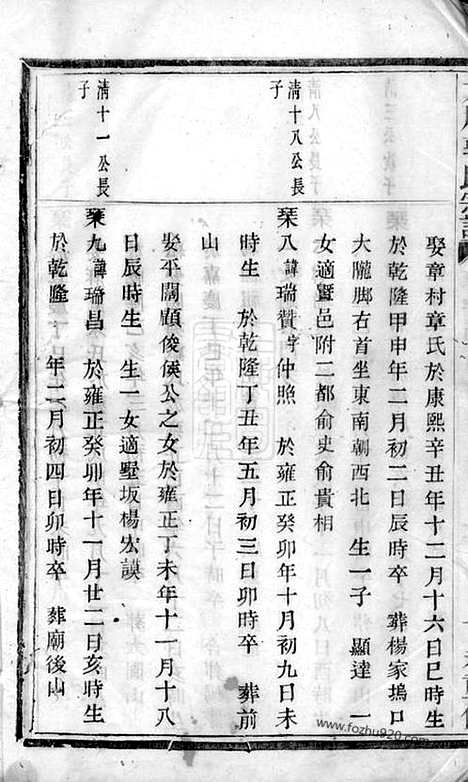 娶章村章氏於康熙辛丑年十二月十六日巳時生
於乾隆甲申年二月初二日辰時卒 葬楊家塢口
大隴脚右首坐東南朝西北 生一子 顯達 一
女適暨邑附二都俞史俞貴相
清十八公長子
琹八諱瑞贊字仲照 於雍正癸卯年十月初九日未
時生 於乾隆丁丑年五月初三日卯時卒 葬前
山
娶平闊顧俊侯公之女於雍正丁未年十一月十八
日辰時生 生一女適墅坂楊宏謨
清十一公長子
琹九諱瑞昌 於雍正癸卯年十一月廿二日亥時生
於乾隆 年二月初四日卯時卒 葬廟後山
www.fozhu920.com